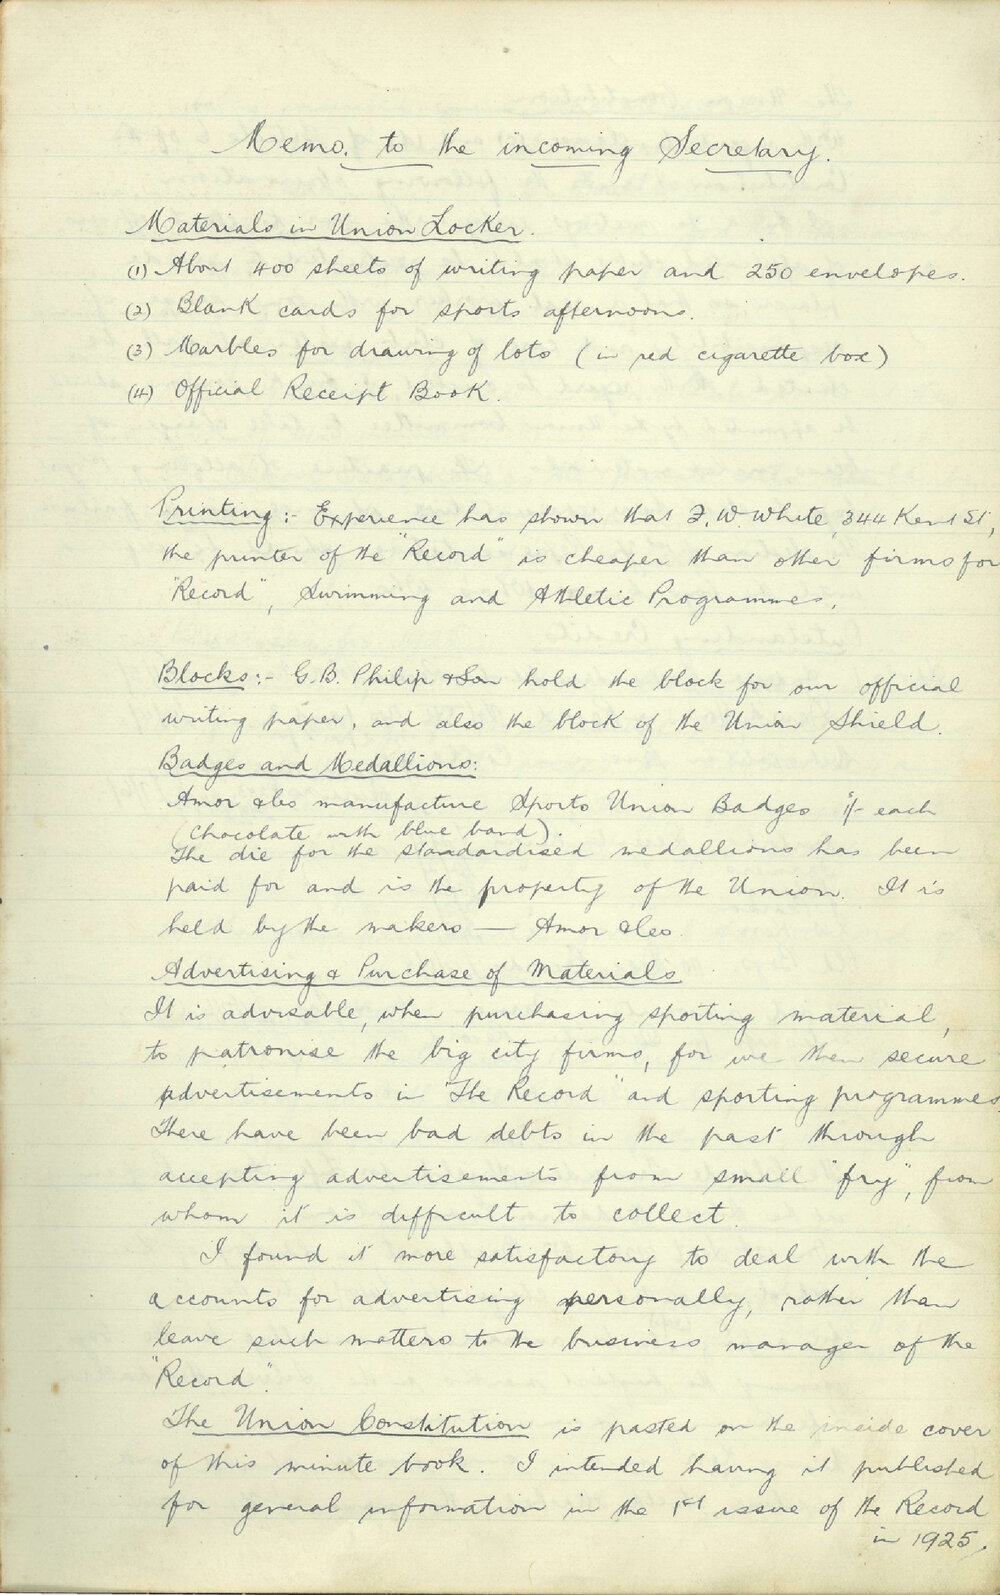 Memo. to the incoming Secretary.
Materials in Union Locker.
(1) About 400 sheets of writing paper and 250 envelopes.
(2) Blank cards for sports afternoons.
(3) Marbles for drawing of lots (in red cigarette box)
(4) Official Receipt Book.
Printing:- Experience has shown that F. W. White, 344 Kent St,
the printer of the "Record" is cheaper than other firms for
"Record", Swimming and Athletic Programmes.
Blocks:- G.B. Philip & Son hold the block for our official
writing paper, and also the block of the Union Shield.
Badges and Medallions:
Amor & Co manufacture Sports Union Badges 1/- each
(chocolate with blue band).
The die for the standardised medallions has been
paid for and is the property of the Union. It is
held by the makers — Amor & Co.
Advertising & Purchase of Materials
It is advisable, when purchasing sporting material,
to patronise the big city firms, for we then secure
advertisements in "The Record" and sporting programmes.
There have been bad debts in the past through
accepting advertisements from small "fry", from
whom it is difficult to collect.
I found it more satisfactory to deal with the
accounts for advertising personally, rather than
leave such matters to the business manager of the
"Record".
The Union Constitution is pasted on the inside cover
of this minute book. I intended having it published
for general information in the 1st issue of the Record
in 1925.